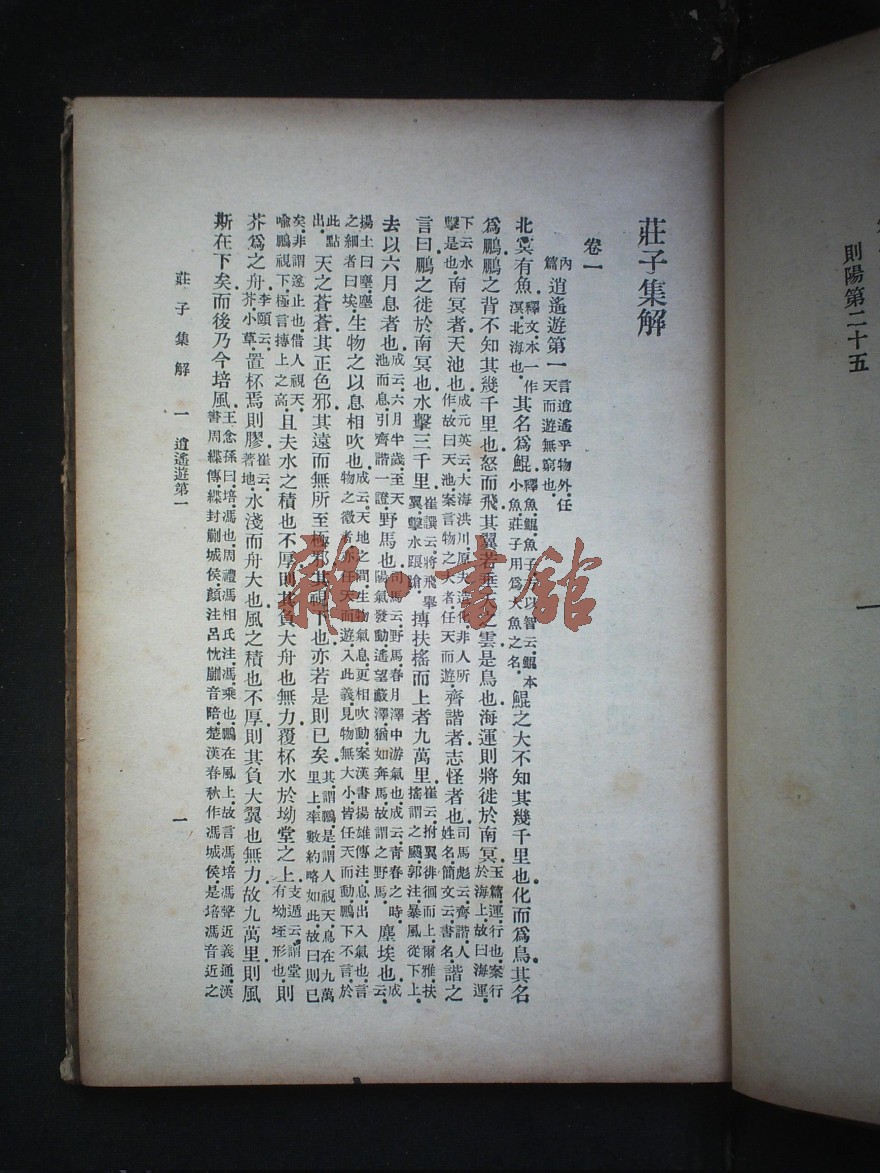 則陽第二十五
一
莊子集解
卷一
內篇逍遙遊第一 言逍遙乎物外．任天而遊無窮也．
北冥有魚．釋文．本一作溟．北海也．其名爲鯤．釋魚．鯤．魚子．以智云．鯤本小魚．莊子用爲大魚之名．鯤之大不知其幾千里也．化而爲鳥．其名
爲鵬．鵬之背不知其幾千里也．怒而飛．其翼若垂之雲．是鳥也．海運則將徙於南冥．玉篇．運．行也．案行於海上．故曰海運．
下云水擊是也．南冥者．天池也．成元英云．大海洪川．原夫造化．非人所作．故曰天池．案言物之大者．任天而遊．齊諧者．志怪者也．司馬彪云．齊諧．人姓名．簡文云．書名．諧之
言曰．鵬之徙於南冥也．水擊三千里．崔譔云．將飛舉翼．擊水踉蹌．摶扶搖而上者九萬里．崔云．拊翼徘徊而上．爾雅．扶搖謂之飈．郭注．暴風從下上．
去以六月息者也．成云．六月半歲．至天池而息．引齊諧一證．野馬也．司馬云．野馬．春月澤中游氣也．成云．青春之時．陽氣發動．遙望藪澤．猶如奔馬．故謂之野馬．塵埃也．成云．
揚土曰塵．塵之細者曰埃．生物之以息相吹也．成云．天地之間．生物氣息．更相吹動．案漢書揚雄傳注．息．出入氣也．言物之微者．亦任天而遊．入此義．見物無大小．皆任天而動．鵬下不言．於
此點出．天之蒼蒼．其正色邪．其遠而無所至極邪．其視下也．亦若是則已矣．其．謂鵬．是．謂人視天．鳥在九萬里上．率數約略如此．故曰則已
矣．非謂遂止也．借人視天．喻鵬視下．極言摶上之高．且夫水之積也不厚．則其負大舟也無力．覆杯水於坳堂之上．支遁云．謂堂有坳垤形也．則
芥爲之舟．李頤云．芥．小草．置杯焉則膠．崔云．著地．水淺而舟大也．風之積也不厚．則其負大翼也無力．故九萬里則風
斯在下矣．而後乃今培風．王念孫曰．培．馮也．周禮馮相氏注．馮．乘也．鵬在風上．故言馮．培馮聲近義通．漢書周緤傳．緤封䣙城侯．顏注．呂忱䣙音陪．楚漢春秋作馮城侯．是培馮音近之
莊子集解 一 逍遙遊第一
一
雜·書館